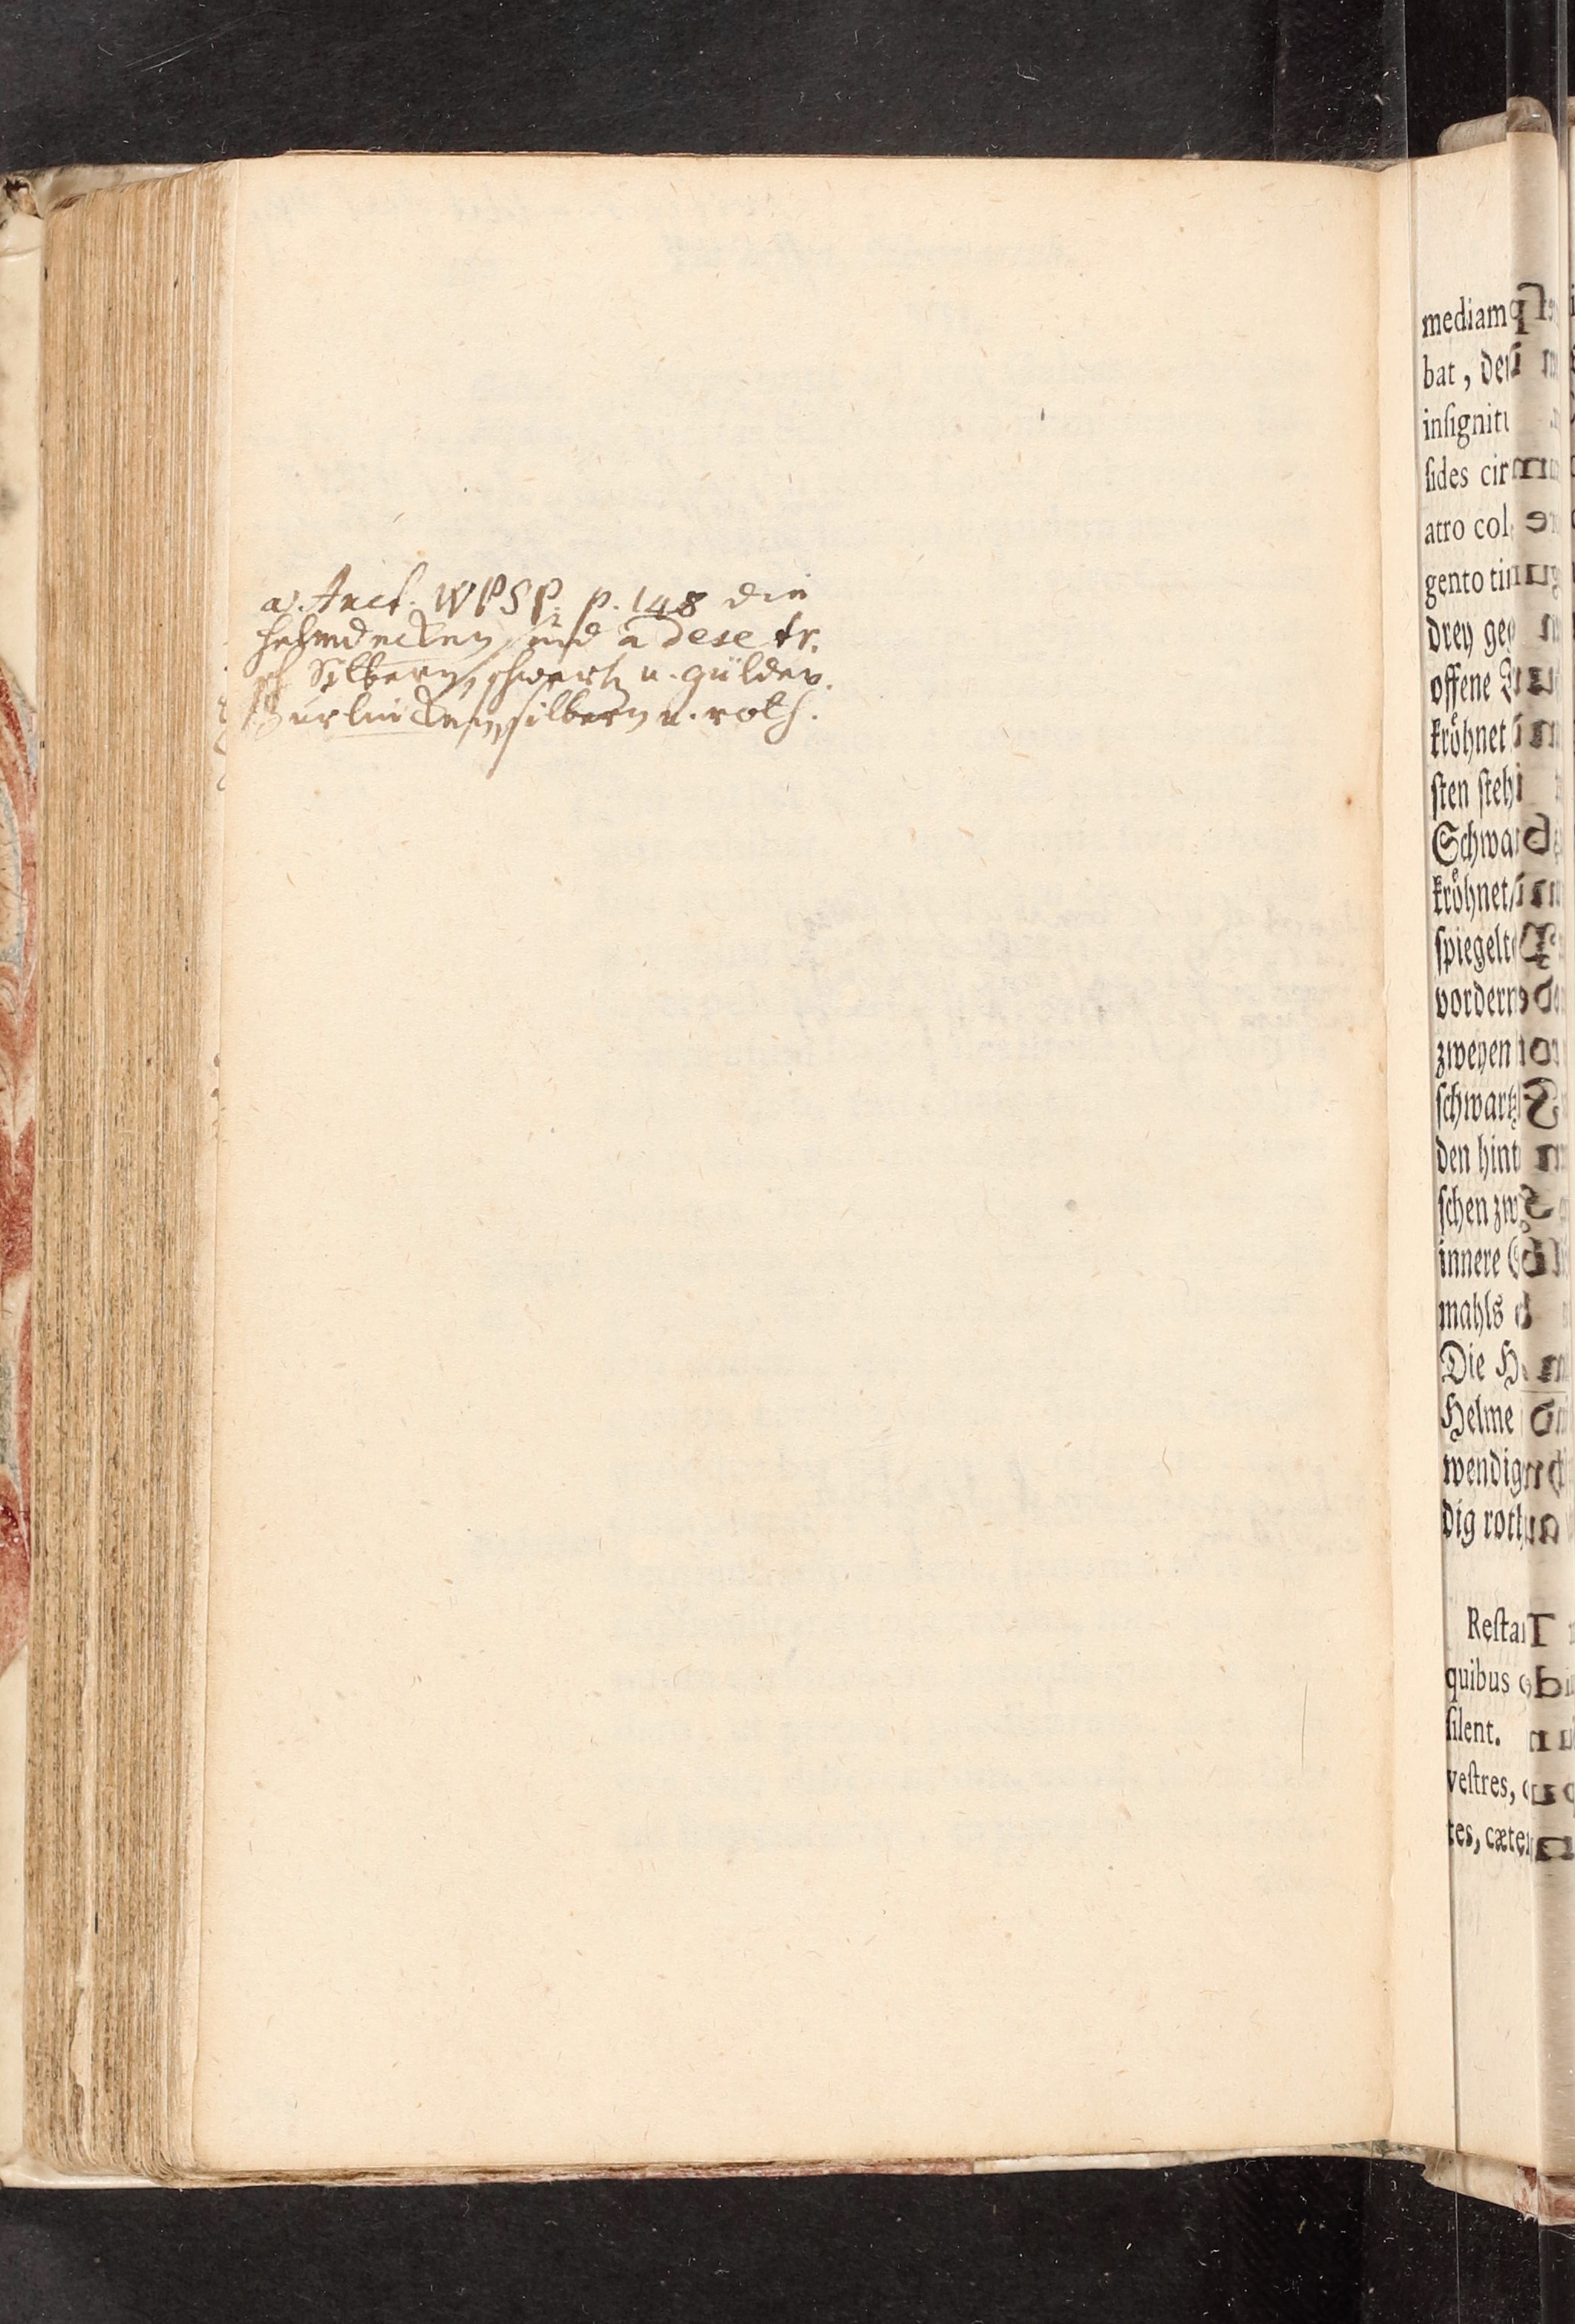 a). Auct. WPSP. p. 148 die
helmdecken sind a dextr.
Silbern, schwartz u. gülden.
Zur lincken, silbern u. roth.
mediam
bat, des
insigniti
ſides cir
atro col
gento tin
drey ge
offene
kröhnet
ſten ſteh
Schwa
kröhnet/
ſpiegelt
vordern
zweyen
ſchwartz
den hint
ſchen zw
innere
mahls
Die H
Helme
wendig
dig roth
Reſta
quibus
ſilent.
veſtres,
tes, cæte